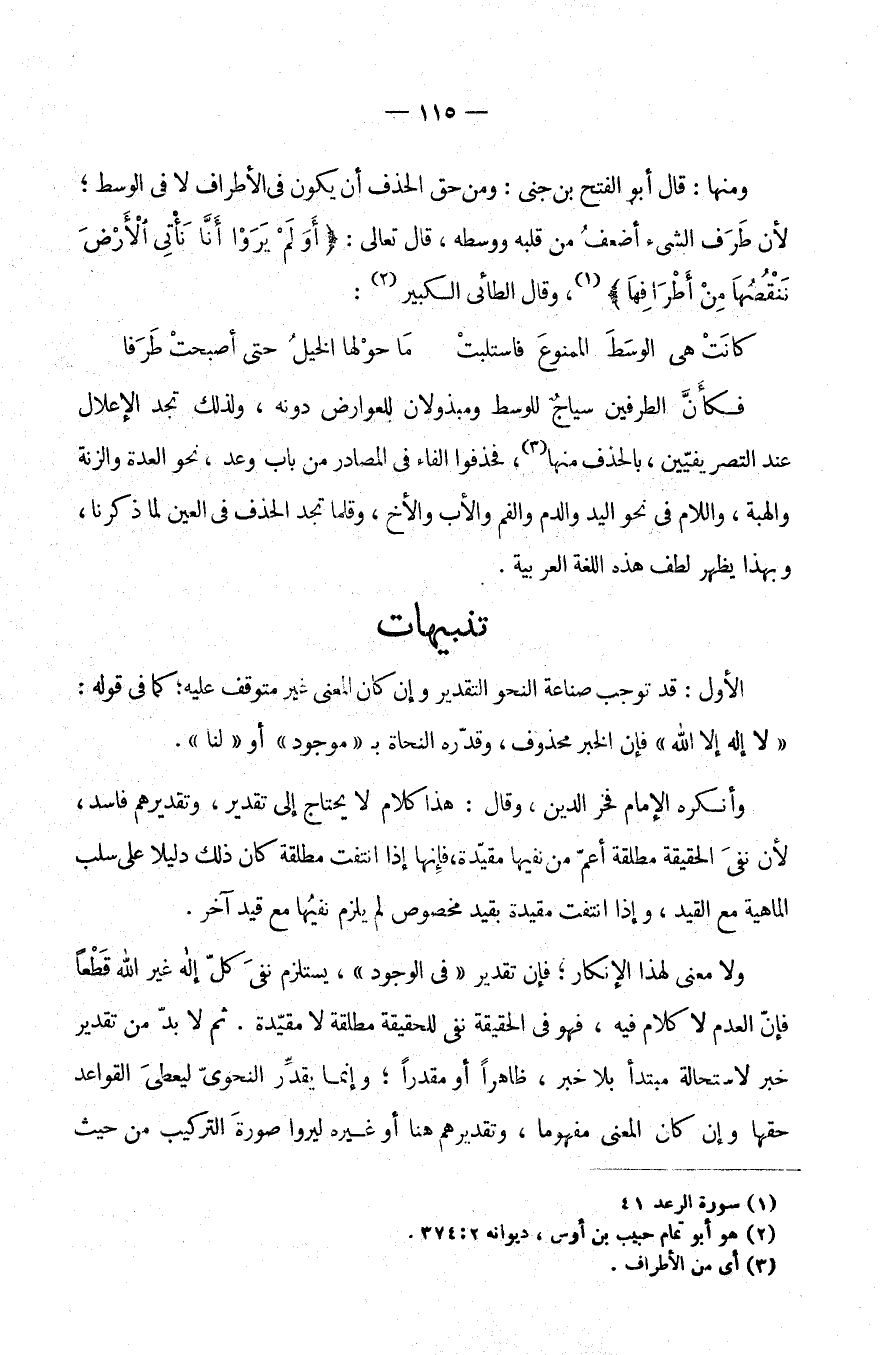 — ١١٥ —
ومنها : قال أبو الفتح بن جنى : ومن حق الحذف أن يكون فى الأطراف لا فى الوسط ؛
لأن طَرَف الشىء أضعفُ من قلبه ووسطه ، قال تعالى : ﴿ أَوَ لَمْ يَرَوْا أَنَّا نَأْتِى ٱلْأَرْضَ
نَنْقُصُهَا مِنْ أَطْرَافِهَا ﴾ (١)، وقال الطائى الكبير (٢) :
كانَتْ هى الوسَطَ الممنوعَ فاستلبتْ مَا حوْلها الخيلُ حتى أصبحتْ طَرَفا
فكأَنَّ الطرفين سياجٌ للوسط ومبذولان للعوارض دونه ، ولذلك تجد الإعلال
عند التصريفيّين ، بالحذف منها(٣)، فحذفوا الفاء فى المصادر من باب وعد ، نحو العدة والزنة
والهبة ، واللام فى نحو اليد والدم والفم والأب والأخ ، وقلما تجد الحذف فى العين لما ذكرنا ،
وبهذا يظهر لطف هذه اللغة العربية .
تنبيهات
الأول : قد توجب صناعة النحو التقدير وإن كان المعنى غير متوقف عليه؛ كما فى قوله :
« لا إله إلا الله » فإن الخبر محذوف ، وقدّره النحاة بـ « موجود » أو « لنا » .
وأنكره الإمام فخر الدين ، وقال : هذا كلام لا يحتاج إلى تقدير ، وتقديرهم فاسد ،
لأن نفىَ الحقيقة مطلقة أعمّ من نفيها مقيّدة،فإنها إذا انتفت مطلقة كان ذلك دليلا على سلب
الماهية مع القيد ، وإذا انتفت مقيدة بقيد مخصوص لم يلزم نفيُها مع قيد آخر .
ولا معنى لهذا الإنكار ؛ فإن تقدير « فى الوجود » ، يستلزم نفىَ كلّ إله غير الله قَطْعاً
فإنّ العدم لا كلام فيه ، فهو فى الحقيقة نفى للحقيقة مطلقة لا مقيّدة . ثم لا بدّ من تقدير
خبر لاستحالة مبتدأ بلا خبر ، ظاهراً أو مقدراً ؛ وإنما يقدِّر النحوىّ ليعطىَ القواعد
حقها وإن كان المعنى مفهوما ، وتقديرهم هنا أو غيره ليروا صورةَ التركيب من حيث
(١) سورة الرعد ٤١
(٢) هو أبو تمام حبيب بن أوس ، ديوانه ٢ : ٣٧٤ .
(٣) أى من الأطراف .